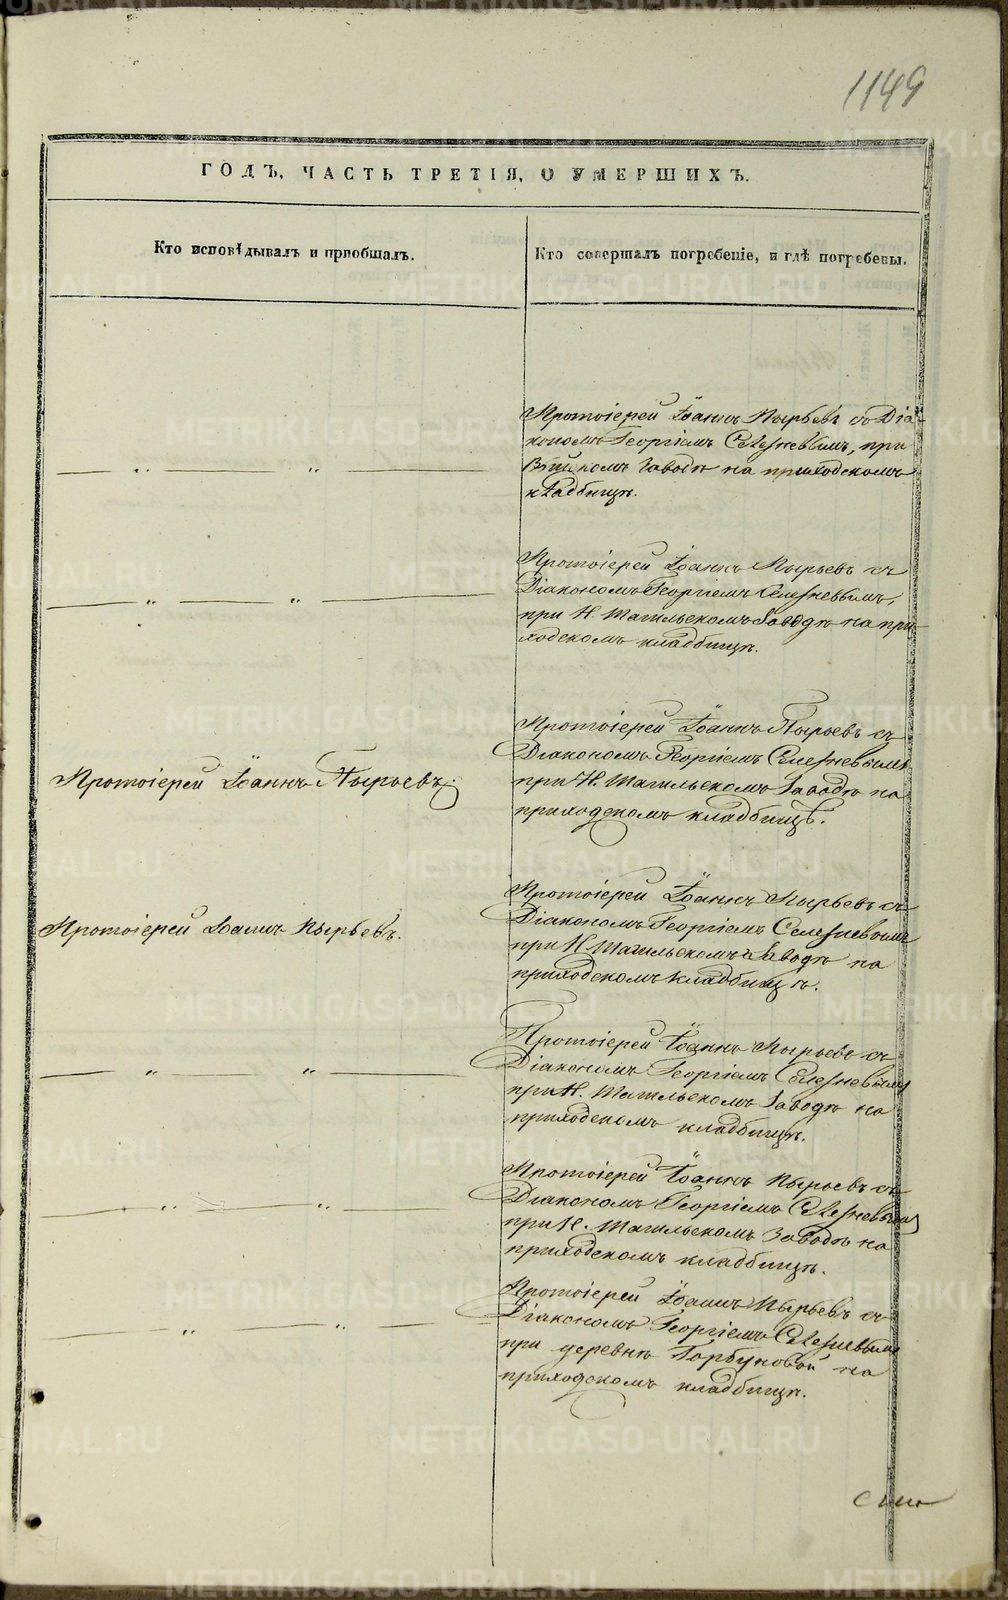 1149
ГОДЪ, ЧАСТЬ ТРЕТІЯ, О УМЕРШИХЪ.
Кто исповѣдывалъ и пріобщалъ.
Кто совершалъ погребеніе, и гдѣ погребены.
Протоіерей Іоаннъ Пырьевъ съ Діа-
кономъ Георгіемъ Селезневымъ, при
Війскомъ Заводѣ на приходскомъ
кладбищѣ.
— „ — „ —
Протоіерей Іоаннъ Пырьевъ съ
Діакономъ Георгіемъ Селезневымъ,
при Н. Тагильскомъ Заводѣ на при-
ходскомъ кладбищѣ.
— „ — „ —
Протоіерей Іоаннъ Пырьевъ съ
Діакономъ Георгіемъ Селезневымъ
при Н. Тагильскомъ Заводѣ на
приходскомъ кладбищѣ.
Протоіерей Іоаннъ Пырьевъ.
Протоіерей Іоаннъ Пырьевъ съ
Діакономъ Георгіемъ Селезневымъ
при Н. Тагильскомъ Заводѣ на
приходскомъ кладбищѣ.
Протоіерей Іоаннъ Пырьевъ.
Протоіерей Іоаннъ Пырьевъ съ
Діакономъ Георгіемъ Селезневымъ
при Н. Тагильскомъ Заводѣ на
приходскомъ кладбищѣ.
— „ — „ —
Протоіерей Іоаннъ Пырьевъ съ
Діакономъ Георгіемъ Селезневымъ
при Н. Тагильскомъ Заводѣ на
приходскомъ кладбищѣ.
— „ — „ —
Протоіерей Іоаннъ Пырьевъ съ
Діакономъ Георгіемъ Селезневымъ
при деревнѣ Горбуновой на
приходскомъ кладбищѣ.
— „ — „ —
METRIKI.GASO-URAL.RU